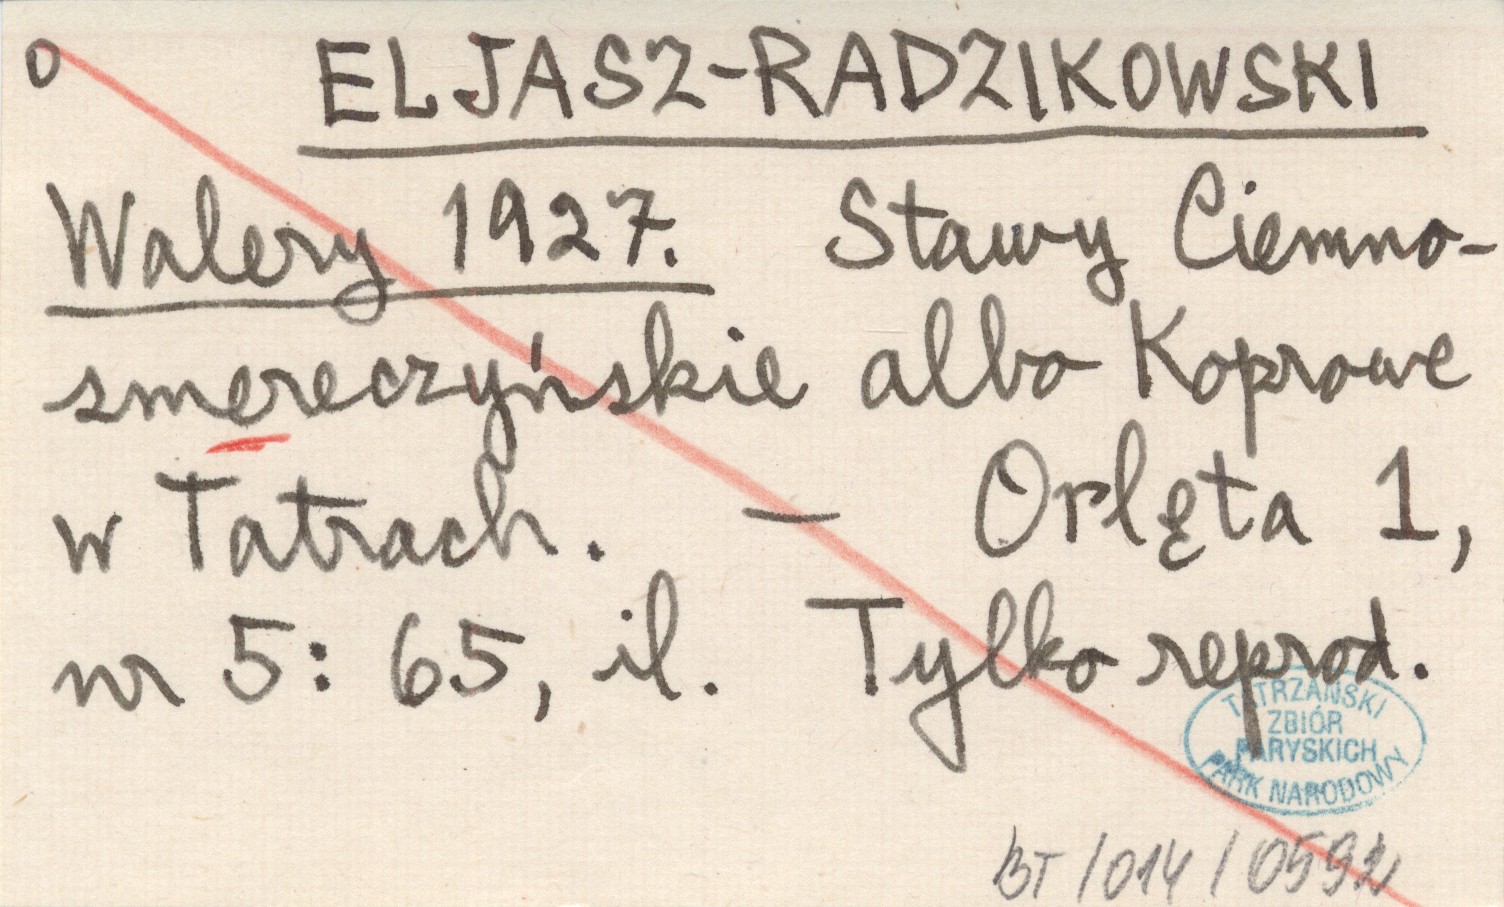 O ELJASZ-RADZIKOWSKI
Walery 1927. Stawy Ciemno-
smereczyńskie albo Koprowe
w Tatrach. — Orlęta 1,
nr 5: 65, il. Tylko reprod.
TATRZAŃSKI
ZBIÓR
PARYSKICH
PARK NARODOWY
BT/014/0592